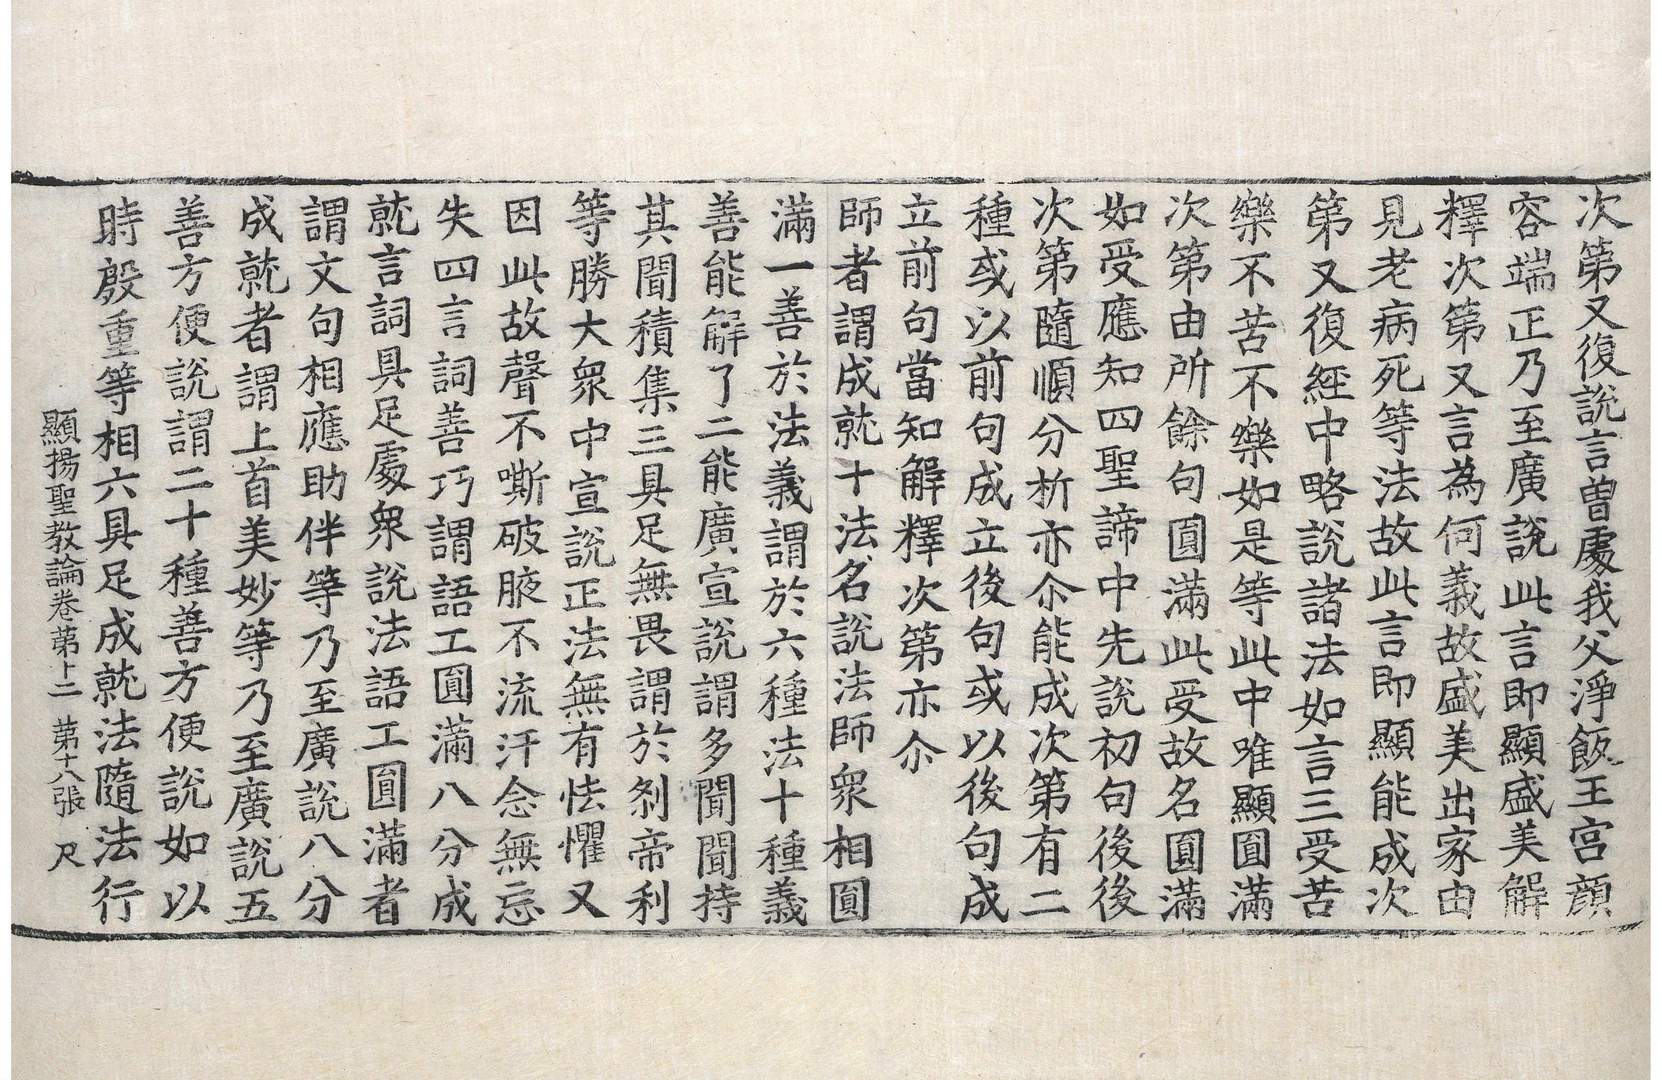 次第又復說言曾處我父淨飯王宮顔
容端正乃至廣說此言即顯盛美解
釋次第又言為何義故盛美出家由
見老病死等法故此言即顯能成次
第又復經中略說諸法如言三受苦
樂不苦不樂如是等此中唯顯圓滿
次第由所餘句圓滿此受故名圓滿
如受應知四聖諦中先說初句後後
次第隨順分析亦尒能成次第有二
種或以前句成立後句或以後句成
立前句當知解釋次第亦尒
師者謂成就十法名說法師衆相圓
滿一善於法義謂於六種法十種義
善能解了二能廣宣說謂多聞聞持
其聞積集三具足無畏謂於刹帝利
等勝大衆中宣說正法無有怯懼又
因此故聲不嘶破腋不流汗念無忘
失四言詞善巧謂語工圓滿八分成
就言詞具足處衆說法語工圓滿者
謂文句相應助伴等乃至廣說八分
成就者謂上首美妙等乃至廣說五
善方便說謂二十種善方便說如以
時慇重等相六具足成就法隨法行
顯揚聖教論卷第十二 第十八張 尺